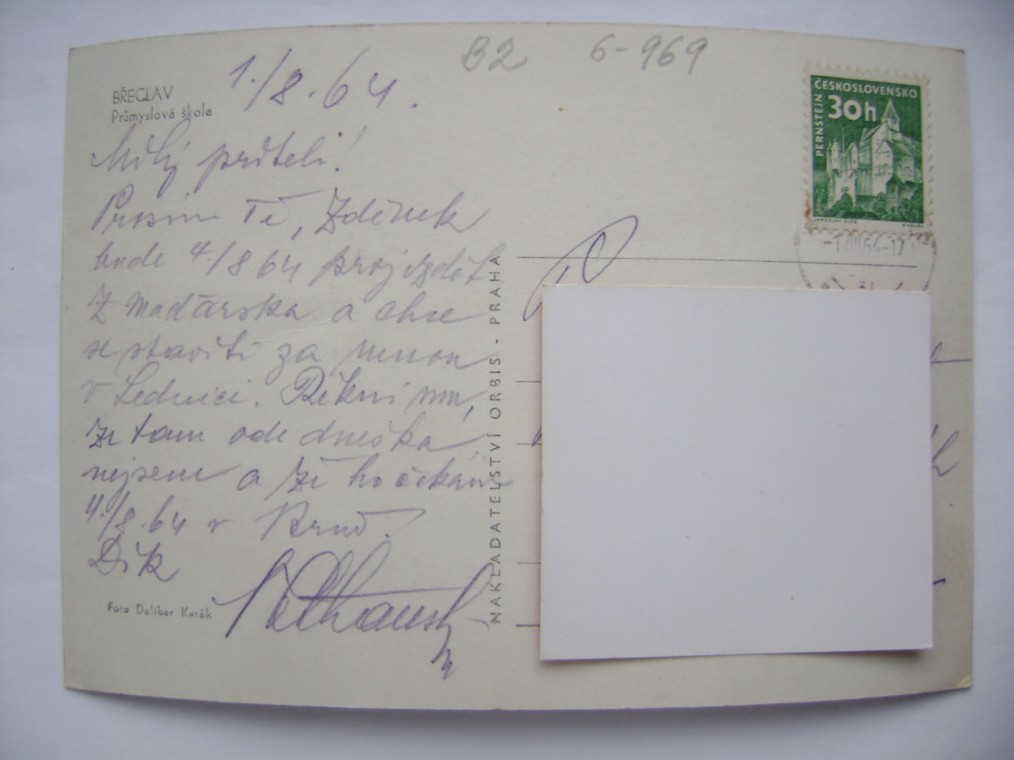 B2 6-969
1./8.64.
BŘECLAV
Průmyslová škola
ČESKOSLOVENSKO
30h
PERNŠTEJN
Milý příteli!
Prosím Tě, Zdeněk
bude 4/8 64 projíždět
z Maďarska a chce
se staviti za mnou
v Lednici. Řekni mu,
že tam ode dneška
nejsem a že ho očekám
4./8.64 v Brně.
Dík
Foto Dalibor Kusák
NAKLADATELSTVÍ ORBIS - PRAHA